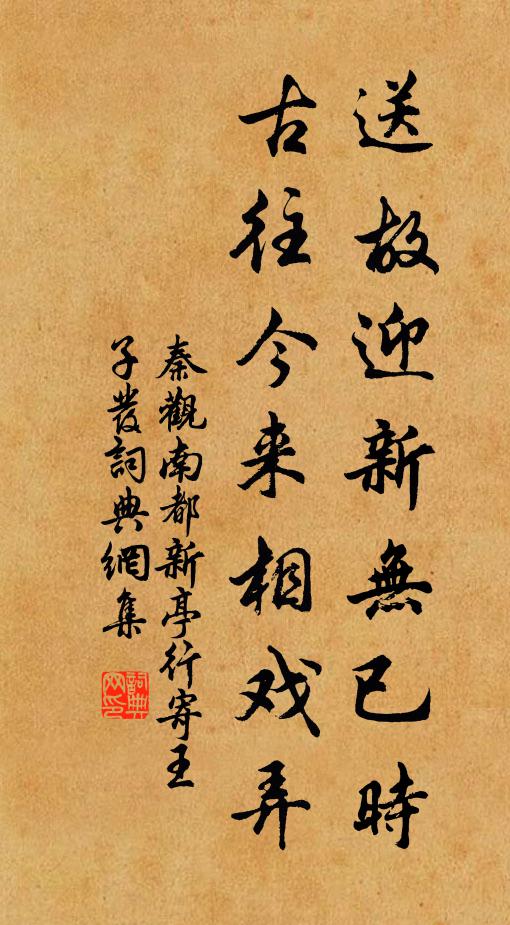 送故迎新無已時
古往今来相戏弄
秦觀南都新亭行寄王
子發詞典網集
詞典网印